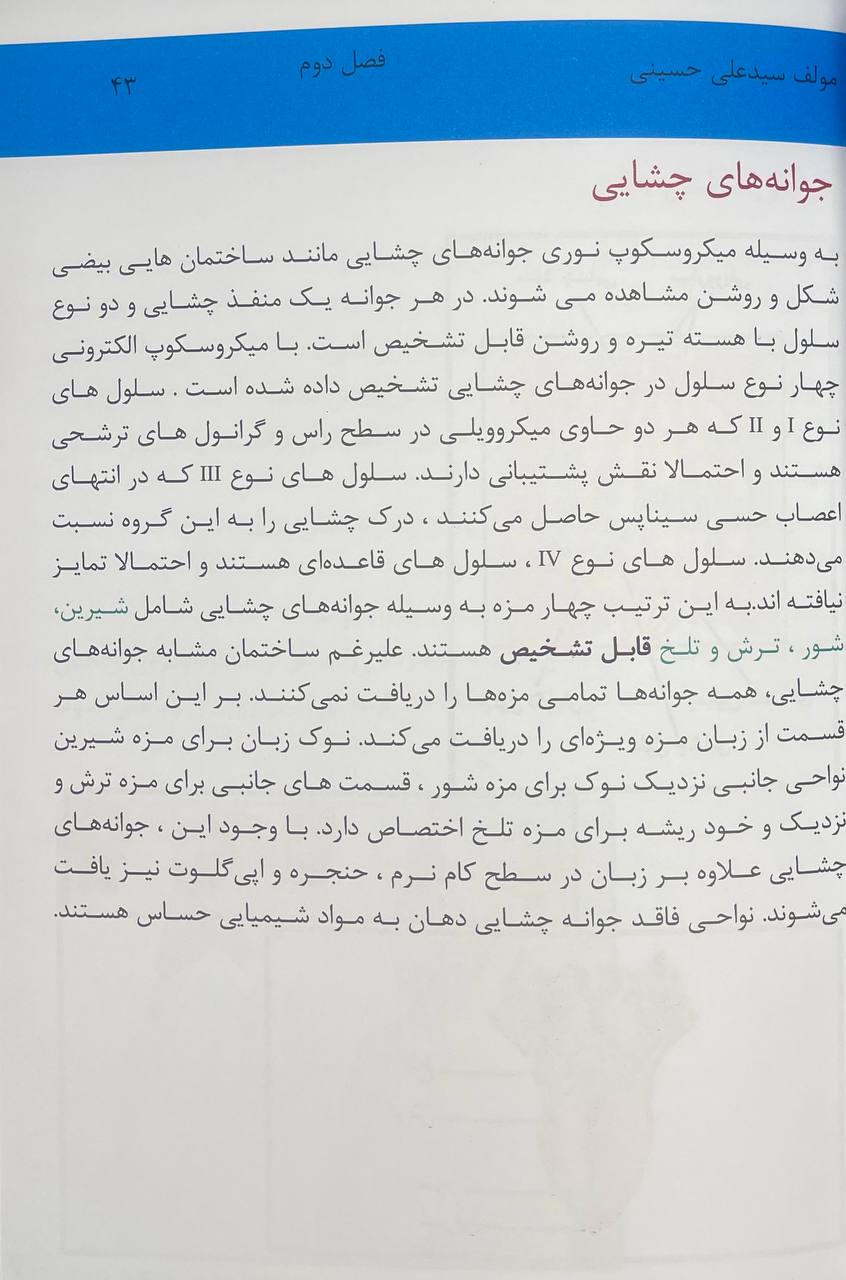 مولف سیدعلی حسینی
فصل دوم
۴۳
جوانه‌های چشایی
به وسیله میکروسکوپ نوری جوانه‌های چشایی مانند ساختمان هایی بیضی
شکل و روشن مشاهده می شوند. در هر جوانه یک منفذ چشایی و دو نوع
سلول با هسته تیره و روشن قابل تشخیص است. با میکروسکوپ الکترونی
چهار نوع سلول در جوانه‌های چشایی تشخیص داده شده است . سلول های
نوع I و II که هر دو حاوی میکروویلی در سطح راس و گرانول های ترشحی
هستند و احتمالا نقش پشتیبانی دارند. سلول های نوع III که در انتهای
اعصاب حسی سیناپس حاصل می‌کنند ، درک چشایی را به این گروه نسبت
می‌دهند. سلول های نوع IV ، سلول های قاعده‌ای هستند و احتمالا تمایز
نیافته اند.به این ترتیب چهار مزه به وسیله جوانه‌های چشایی شامل شیرین،
شور ، ترش و تلخ قابل تشخیص هستند. علیرغم ساختمان مشابه جوانه‌های
چشایی، همه جوانه‌ها تمامی مزه‌ها را دریافت نمی‌کنند. بر این اساس هر
قسمت از زبان مزه ویژه‌ای را دریافت می‌کند. نوک زبان برای مزه شیرین
نواحی جانبی نزدیک نوک برای مزه شور ، قسمت های جانبی برای مزه ترش و
نزدیک و خود ریشه برای مزه تلخ اختصاص دارد. با وجود این ، جوانه‌های
چشایی علاوه بر زبان در سطح کام نرم ، حنجره و اپی‌گلوت نیز یافت
می‌شوند. نواحی فاقد جوانه چشایی دهان به مواد شیمیایی حساس هستند.